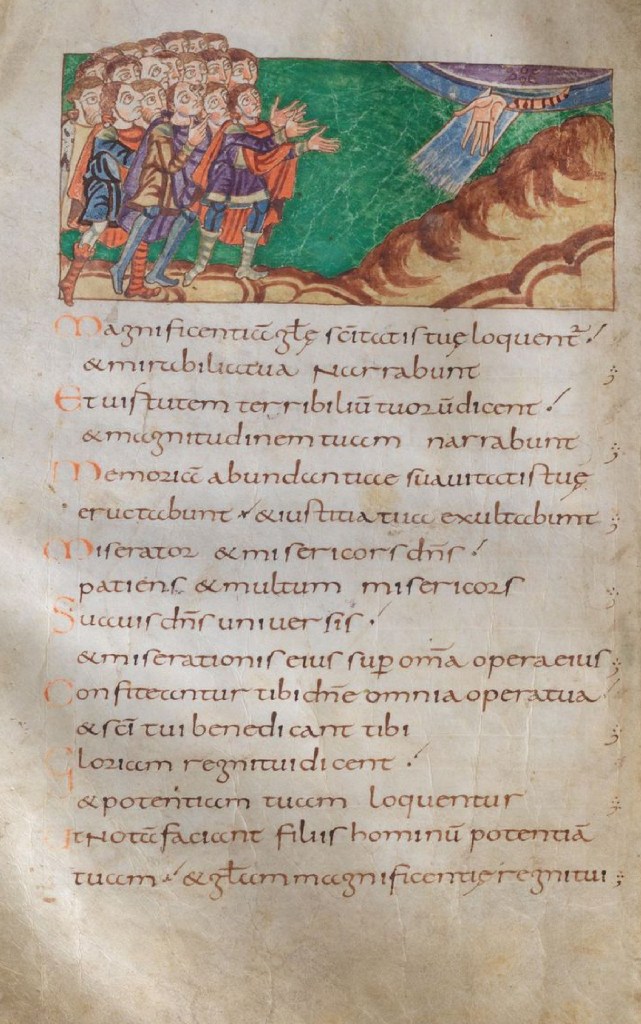 Magnificentiā głę sc̄itatis tuę loquent̄ :
& mirabilia tua narrabunt ;
Et uirtutem terribiliū tuorū dicent :
& magnitudinem tuam narrabunt ;
Memoriā abundantiae suauitatis tuę
eructabunt · & iustitia tua exultabunt ;
Miserator & misericors dn̄s :
patiens & multum misericors ;
Suauis dn̄s uniuersis :
& miserationis eius sup̄ om̄a opera eius ;
Confiteantur tibi dn̄e omnia opera tua :
& sc̄i tui benedicant tibi ;
Gloriam regni tui dicent :
& potentiam tuam loquentur ;
Ut notā faciant filiis hominū potentiā
tuam · & głam magnificentię regni tui ;